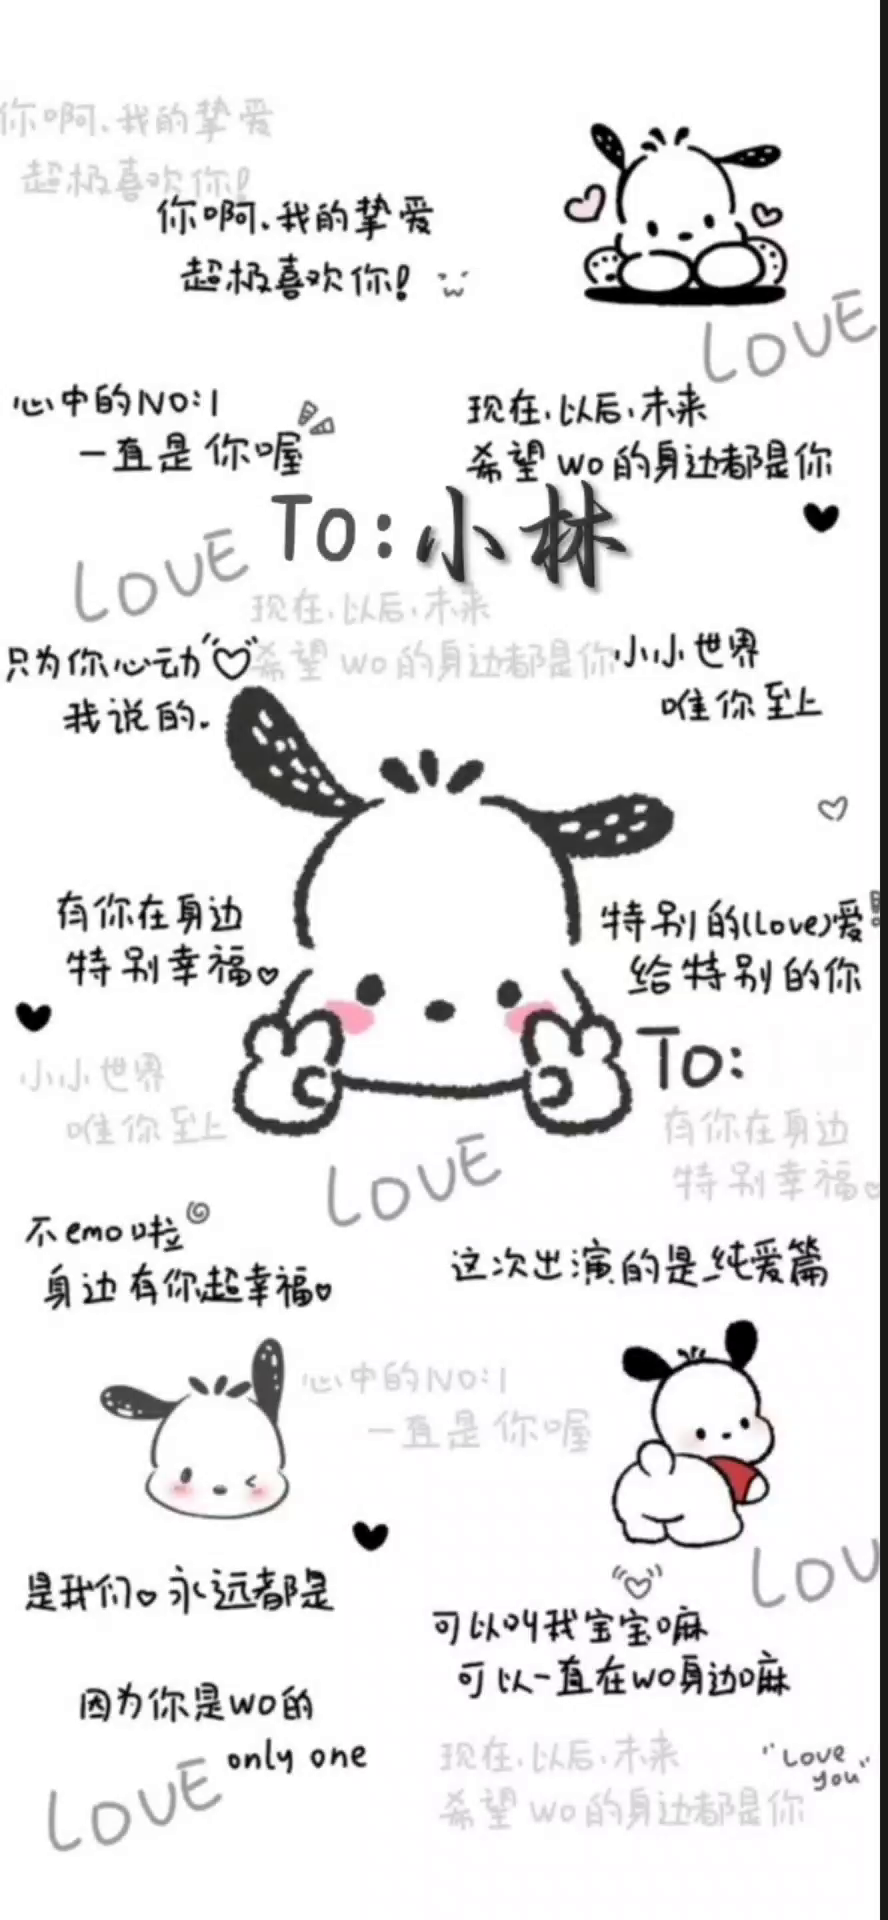 你啊、我的挚爱
超极喜欢你!
你啊、我的挚爱
超极喜欢你!
LOVE
心中的NO:1
一直是你喔
现在、以后、未来
希望wo的身边都是你
To:小林
LOVE
现在、以后、未来
希望wo的身边都是你
只为你心动
我说的.
小小世界
唯你至上
有你在身边
特别幸福
特别的(love)爱
给特别的你
To:
小小世界
唯你至上
有你在身边
特别幸福
LOVE
不emo啦
身边有你超幸福
这次出演的是纯爱篇
心中的NO:1
一直是你喔
是我们 永远都是
LOV
可以叫我宝宝嘛
可以一直在wo身边嘛
因为你是wo的
only one
现在、以后、未来
希望wo的身边都是你
"Love
you"
LOVE